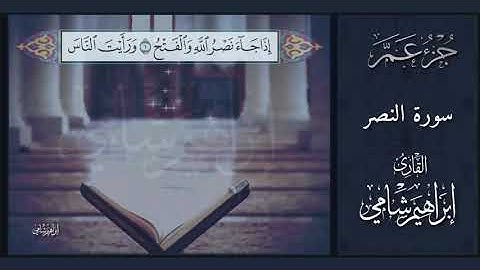 إِذَا جَآءَ نَصْرُ اللَّهِ وَالْفَتْحُ ۝١ وَرَأَيْتَ النَّاسَ
جُزْءُ عَمَّ
سورة النصر
القَارِئ
إبْرَاهِيم شَامِي
إبراهيم شامي